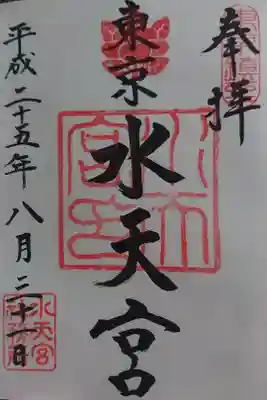 奉拝
東京
水天宮
平成二十五年八月二十一日
水天宮印